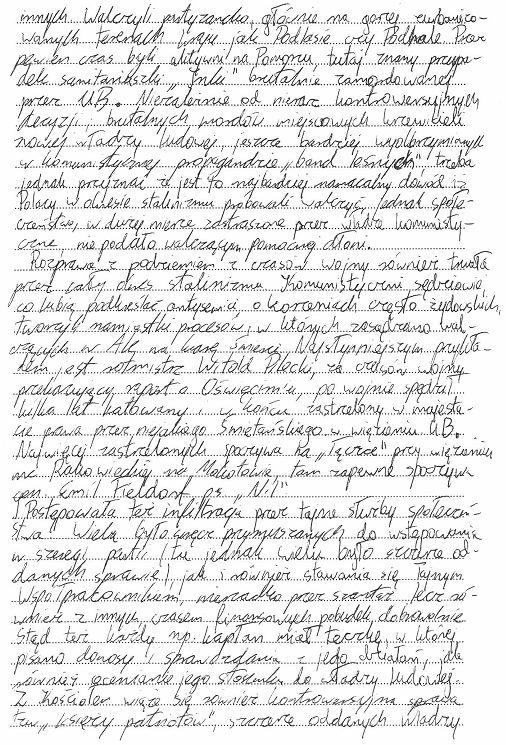 innych. Walczyli partyzancko, głównie na gorzej zurbanizo-
wanych terenach kraju jak Podlasie czy Podhale. Przez
pewien czas byli aktywni na Pomorzu, tutaj znany przypa-
dek sanitariuszki „Inki” brutalnie zamordowanej
przez UB. Niezależnie od nieraz kontrowersyjnych
decyzji i brutalnych mordów miejscowych krzewicieli
nowej władzy ludowej, jeszcze bardziej wyolbrzymianych
w komunistycznej propagandzie „band leśnych” trzeba
jednak przyznać że jest to najbardziej namacalny dowód iż
Polacy w okresie stalinizmu próbowali walczyć, jednak społe-
czeństwo, w dużej mierze zastraszone przez władze komunisty-
czne, nie podało walczącym pomocnej dłoni.
Rozprawa z podziemiem z czasów wojny również trwała
przez cały okres stalinizmu. Komunistyczni sędziowie,
co lubią podkreślać antysemici, o korzeniach często żydowskich,
tworzyli namiastki procesów, w których zasądzano wal-
czących w AK na karę śmierci. Najsłynniejszym przykła-
dem jest rotmistrz Witold Pilecki, za czasów wojny
przekazujący raport o Oświęcimiu, po wojnie spędził
kilka lat katowany i w końcu zastrzelony w majesta-
cie prawa przez niejakiego Śmietańskiego w więzieniu UB.
Najwięcej zastrzelonych spoczywa na „Łączce” przy więzieniu
na Rakowieckiej na Mokotowie, tam zapewne spoczywa
gen. Emil Fieldorf ps. „Nil”.
Postępowała też infiltracja przez tajne służby społeczeń-
stwa. Wielu było wręcz przymuszanych do wstępowania
w szeregi partii (tu jednak wielu było szczerze od-
danych sprawie), jak i również stawania się Tajnym
Współpracownikiem, nierzadko przez szantaż lecz ró-
wnież z innych, czasem finansowych pobudek, dobrowolnie.
Stąd też każdy np. kapłan miał teczkę, w której
pisano donosy i sprawozdania z jego działań, ale
również oceniano jego stosunek do władzy ludowej.
Z Kościołem wiąże się również kontrowersyjna sprawa
tzw. „księży patriotów”, szczerze oddanych władzy